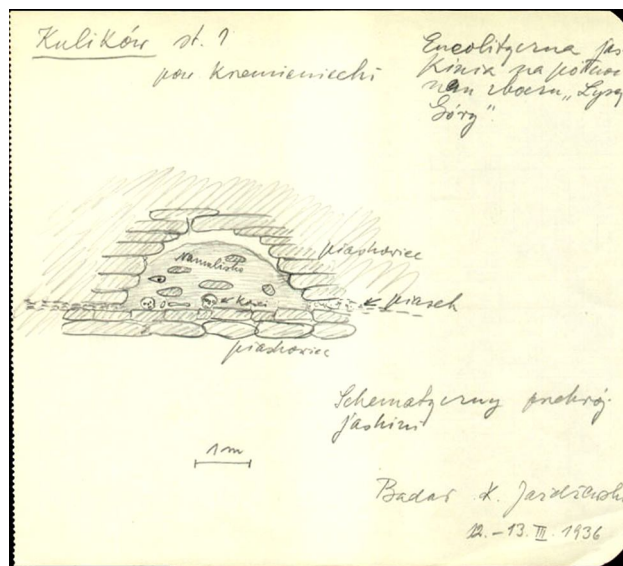 Kulików st. 1
pow Krzemieniecki
Eneolityczna jas
kinia na północ
nym zboczu „Łysej
Góry”.
Namulisko
piaskowiec
← kości
← piasek
piaskowiec
Schematyczny przekrój
jaskini
1m
Badał K. Jażdżewski
12.–13. III. 1936